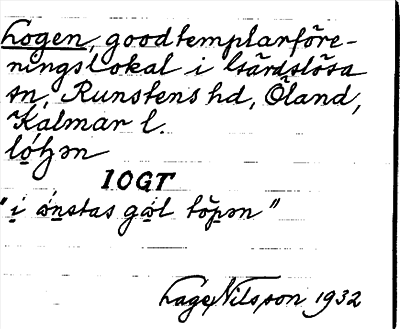 Logen, goodtemplarföre-
ningslokal i Gårdslösa
sn, Runstens hd, Öland,
Kalmar l.
lo̩ʒən
IOGT
"i ønstas gəl töpən"
Lage Nilsson 1932